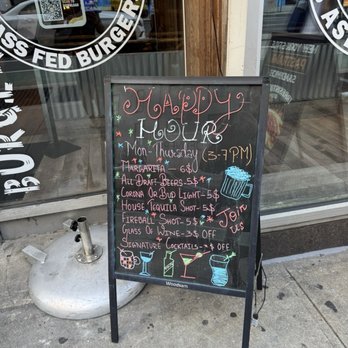 ASS FED BURGER
BURGE
HAPPY
HOUR
Mon-Thursday (3-7PM)
MARGARETA - 6$U
ALL DRAFT BEERS-5$
CORONA OR BUD LIGHT-5$
HOUSE TEQUILA SHOT-5$
FIREBALL SHOT-5$
GLASS OF WINE-3$ OFF
SIGNATURE COCKTAILS- $ OFF
JOIN
US
Woodsam